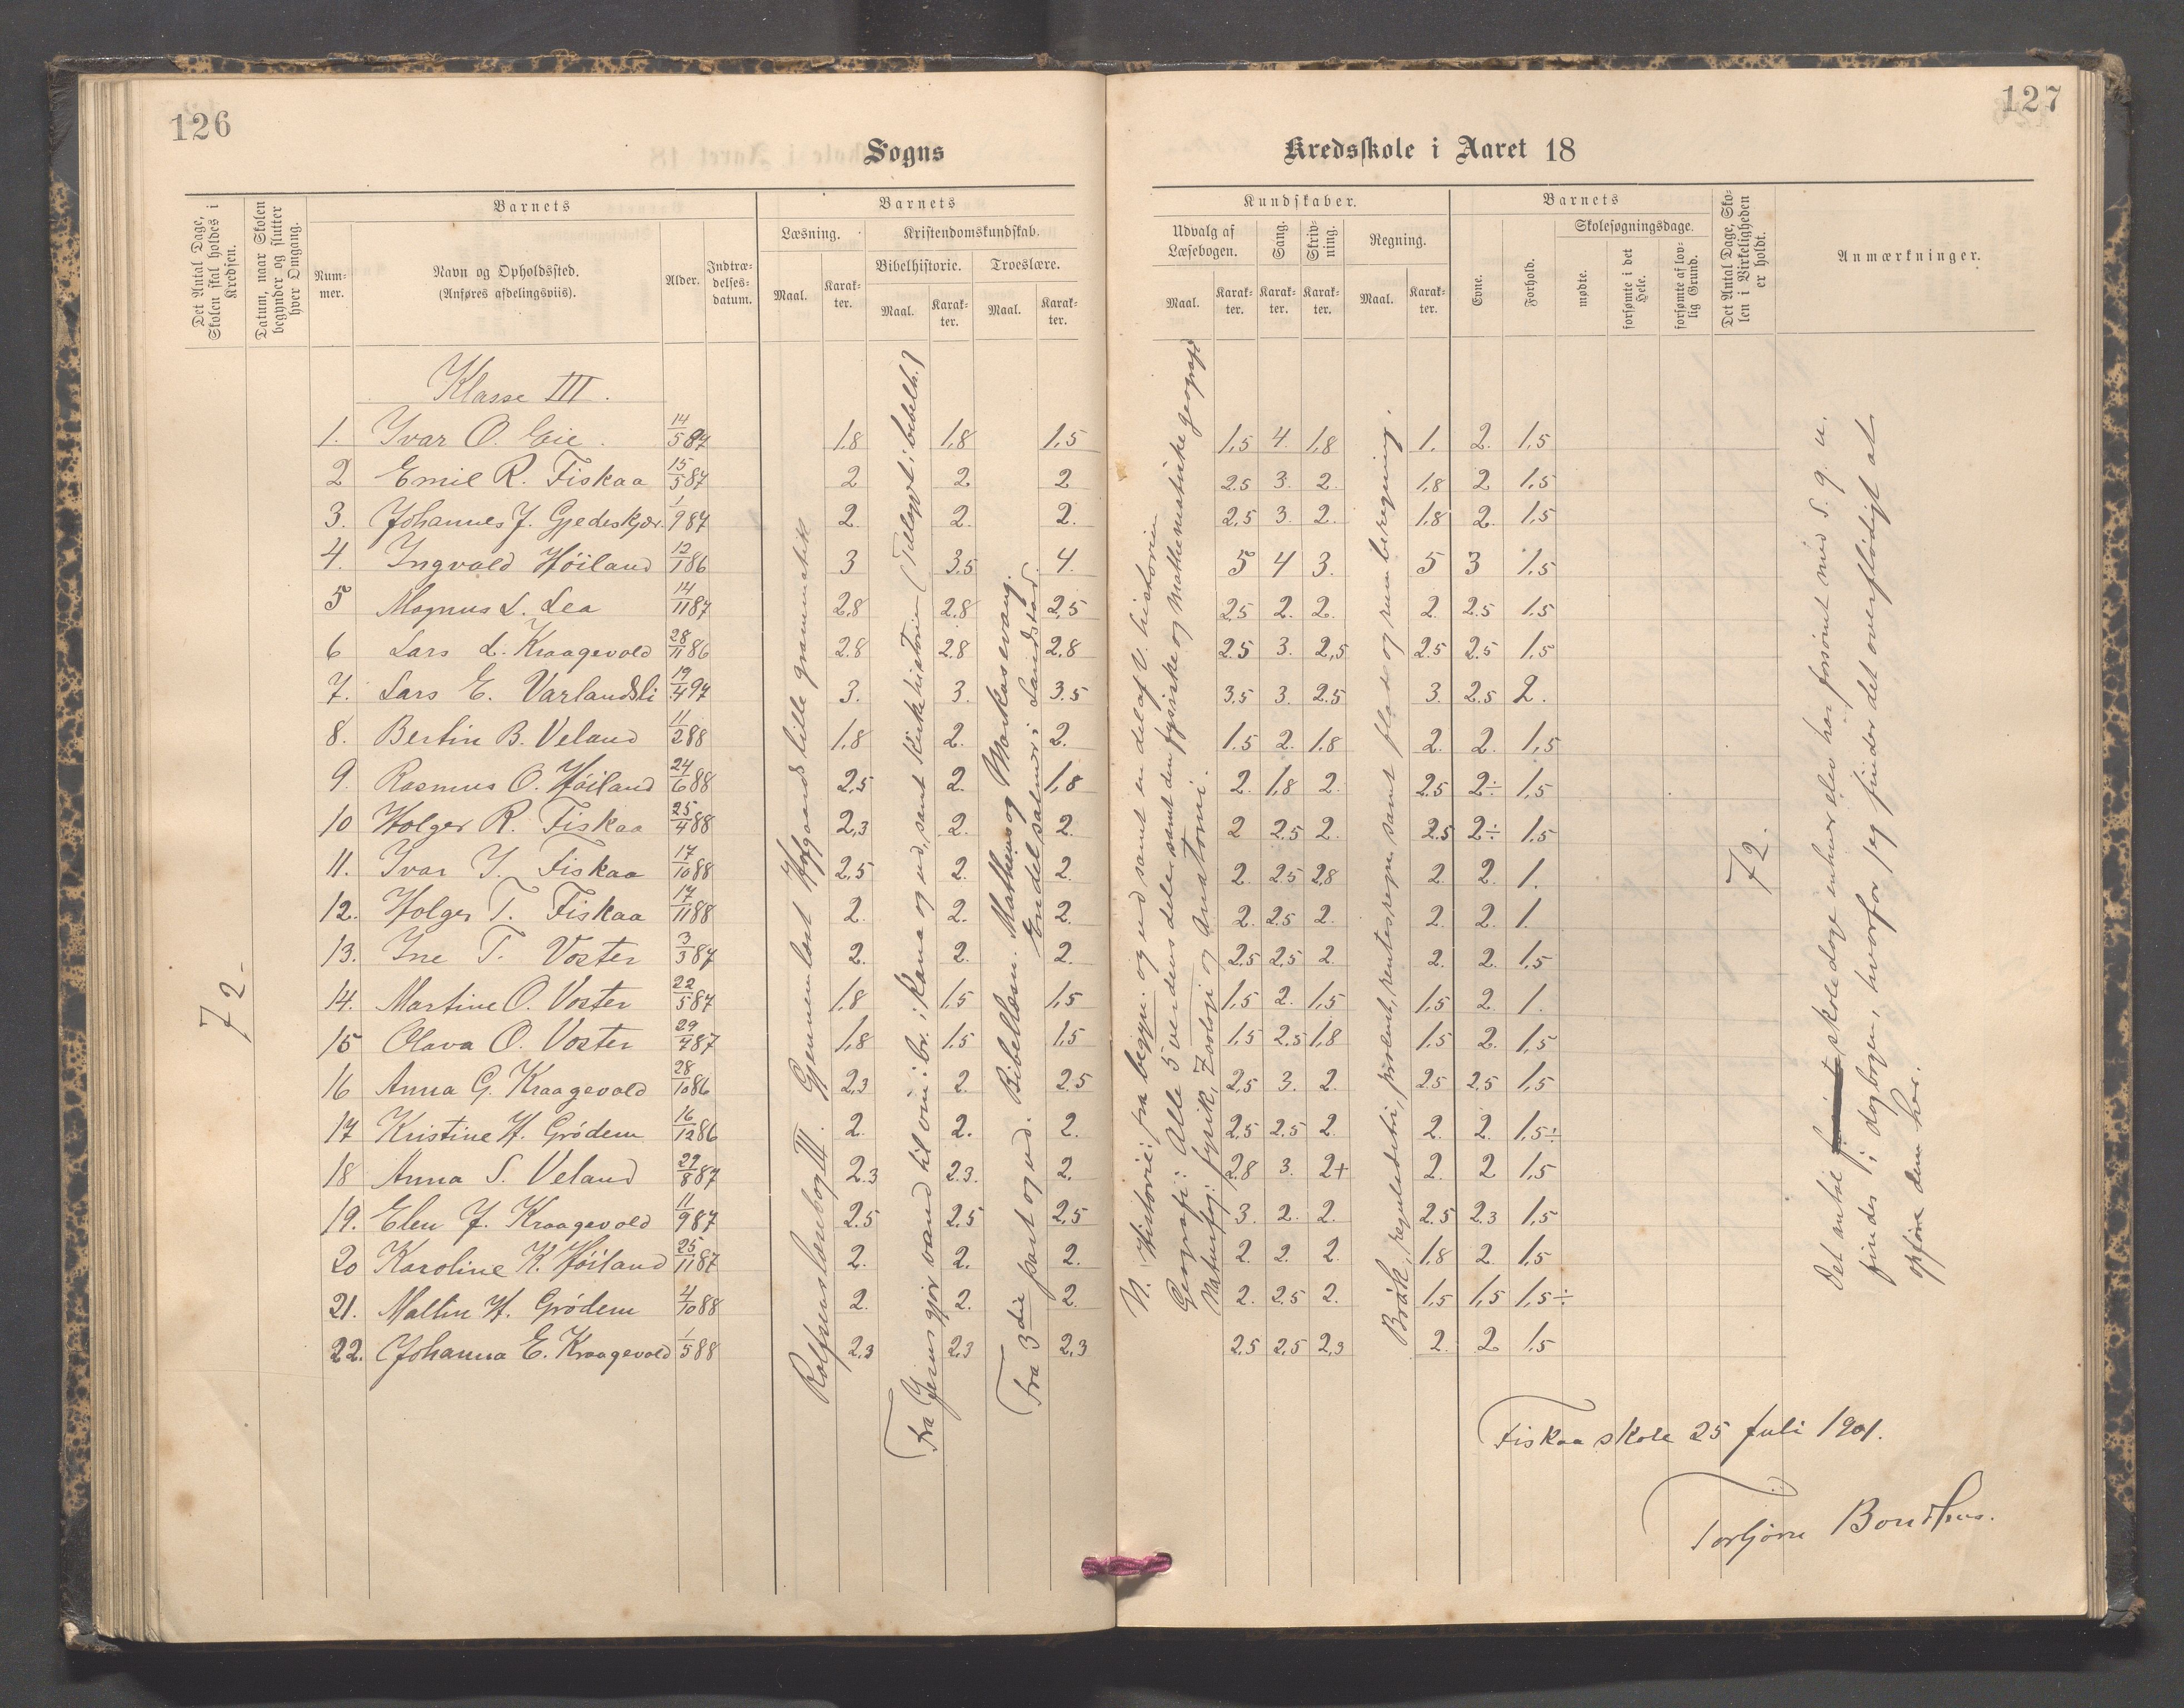 126
127
Sogns
Kredsskole i Aaret 18
Det Antal Dage, Skolen skal holdes i Kredsen.
Datum, naar Skolen begynder og slutter hver Omgang.
Barnets
Num-mer.
Navn og Opholdssted.
(Anføres afdelingsviis).
Alder.
Indtræ-delses-datum.
Barnets
Læsning.
Maal.
Karak-ter.
Kristendomskundskab.
Bibelhistorie.
Maal.
Karak-ter.
Troeslære.
Maal.
Karak-ter.
Kundskaber.
Udvalg af Læsebogen.
Maal.
Karak-ter.
Sang.
Karak-ter.
Skriv-ning.
Karak-ter.
Regning.
Maal.
Karak-ter.
Barnets
Evne.
Forhold.
Skolesøgningsdage.
mødte.
forsømte i det Hele.
forsømte af lov-lig Grund.
Det Antal Dage, Sko-len i Virkeligheden er holdt.
Anmærkninger.
Klasse III.
1. Ivar O. Eie. 14/5 87 1,8 1,8 1,5 1,5 4. 1,8 1. 2. 1,5
2 Emil R. Fiskaa 15/5 87 2 2 2 2.5 3. 2. 1,8 2 1,5
3. Johannes J. Gjedeskjær. 1/9 87 2. 2. 2. 2,5 3. 2. 1,8 2. 1,5
4. Ingvald Høiland 12/1 86 3 3.5 4. 5 4 3. 5 3 1,5
5 Magnus L. Lea 14/11 87 2,8 2,8 2,5 2,5 2. 2. 2. 2.5 1,5
6 Lars L. Kraagevold 28/11 86 2.8 2,8 2,8 2.5 3. 2,5 2.5 2.5 1,5
7. Lars E. Varlandsli 19/4 97 3. 3. 3.5 3.5 3 2.5 3. 2.5 2.
8. Bertin B. Veland 11/2 88 1,8 2. 2. 1.5 2. 1.8 2. 2. 1,5
9. Rasmus O. Høiland 24/6 88 2,5 2. 1,8 2. 1,8 2. 2.5 2÷ 1,5
10 Holger R. Fiskaa 25/4 88 2,3 2. 2. 2 2.5 2. 2.5 2÷ 1.5
11. Ivar J. Fiskaa 17/10 88 2,5 2. 2. 2. 2.5 2,8 2. 2. 1.
12. Holger T. Fiskaa 17/11 88 2. 2. 2. 2. 2.5 2. 2. 2. 1.
13. Ine T. Voster 3/3 87 2. 2. 2. 2,5 2,5 2. 2. 2. 1,5
14. Martine O. Voster 22/5 87 1,8 1,5 1,5 1,5 2. 1,5 1,5 2. 1.
15 Olava O. Voster 29/4 87 1,8 1.5 1,5 1.5 2.5 1,8 1,5 2. 1,5
16 Anna G. Kraagevold 28/10 86 2,3 2. 2.5 2,5 3. 2. 2.5 2.5 1,5
17 Kristine H. Grödem 16/12 86 2. 2. 2. 2,5 2,5 2. 2. 2. 1,5÷
18 Anna S. Veland 29/8 87 2.3 2.3. 2. 2.8 3. 2+ 2. 2 1,5
19. Elen J. Kraagevold 11/9 87 2.5 2,5 2,5 3. 2. 2. 2.5 2.3 1,5
20 Karoline K. Høiland 25/11 87 2. 2. 2. 2. 2. 2. 1,8 2. 1,5
21. Mallin H. Grödem 4/10 88 2. 2. 2. 2. 2.5 2. 1,5 1,5 1,5÷
22. Johanna E. Kraagevold 1/5 88 2,3 2,3 2,3 2.5 2,5 2,3 2. 2 1.5
72
Rolfsens læsebog III. Gjennemlæst Hofgaards lille grammatik
Fra Jesus gjør vand til vin: br. i Kana og ud, samt kirkehistorien (Tillægget i bibelh.)
Fra 3die part og ud. Bibellæsn. Matheus og Markus evang.
En del salmer i Landstad.
N. Historie: fra begyn. og ud samt en del af V. historien
Geografi: Alle 5 verdens dele samt den fysiske og Mathematiske geografi
Naturfag: fysik, Zoologi og Anatomi.
Brøk, reguladetri, procent, rentesregn. samt flade og rumberegning.
72.
Det antal skoledage enhver elev har forsømt med s. g. u.
findes i dagbogen, hvorfor jeg finder det overflødigt at
opføre dem her.
Fiskaa skole 25 Juli 1901.
Torbjørn Bondhus.